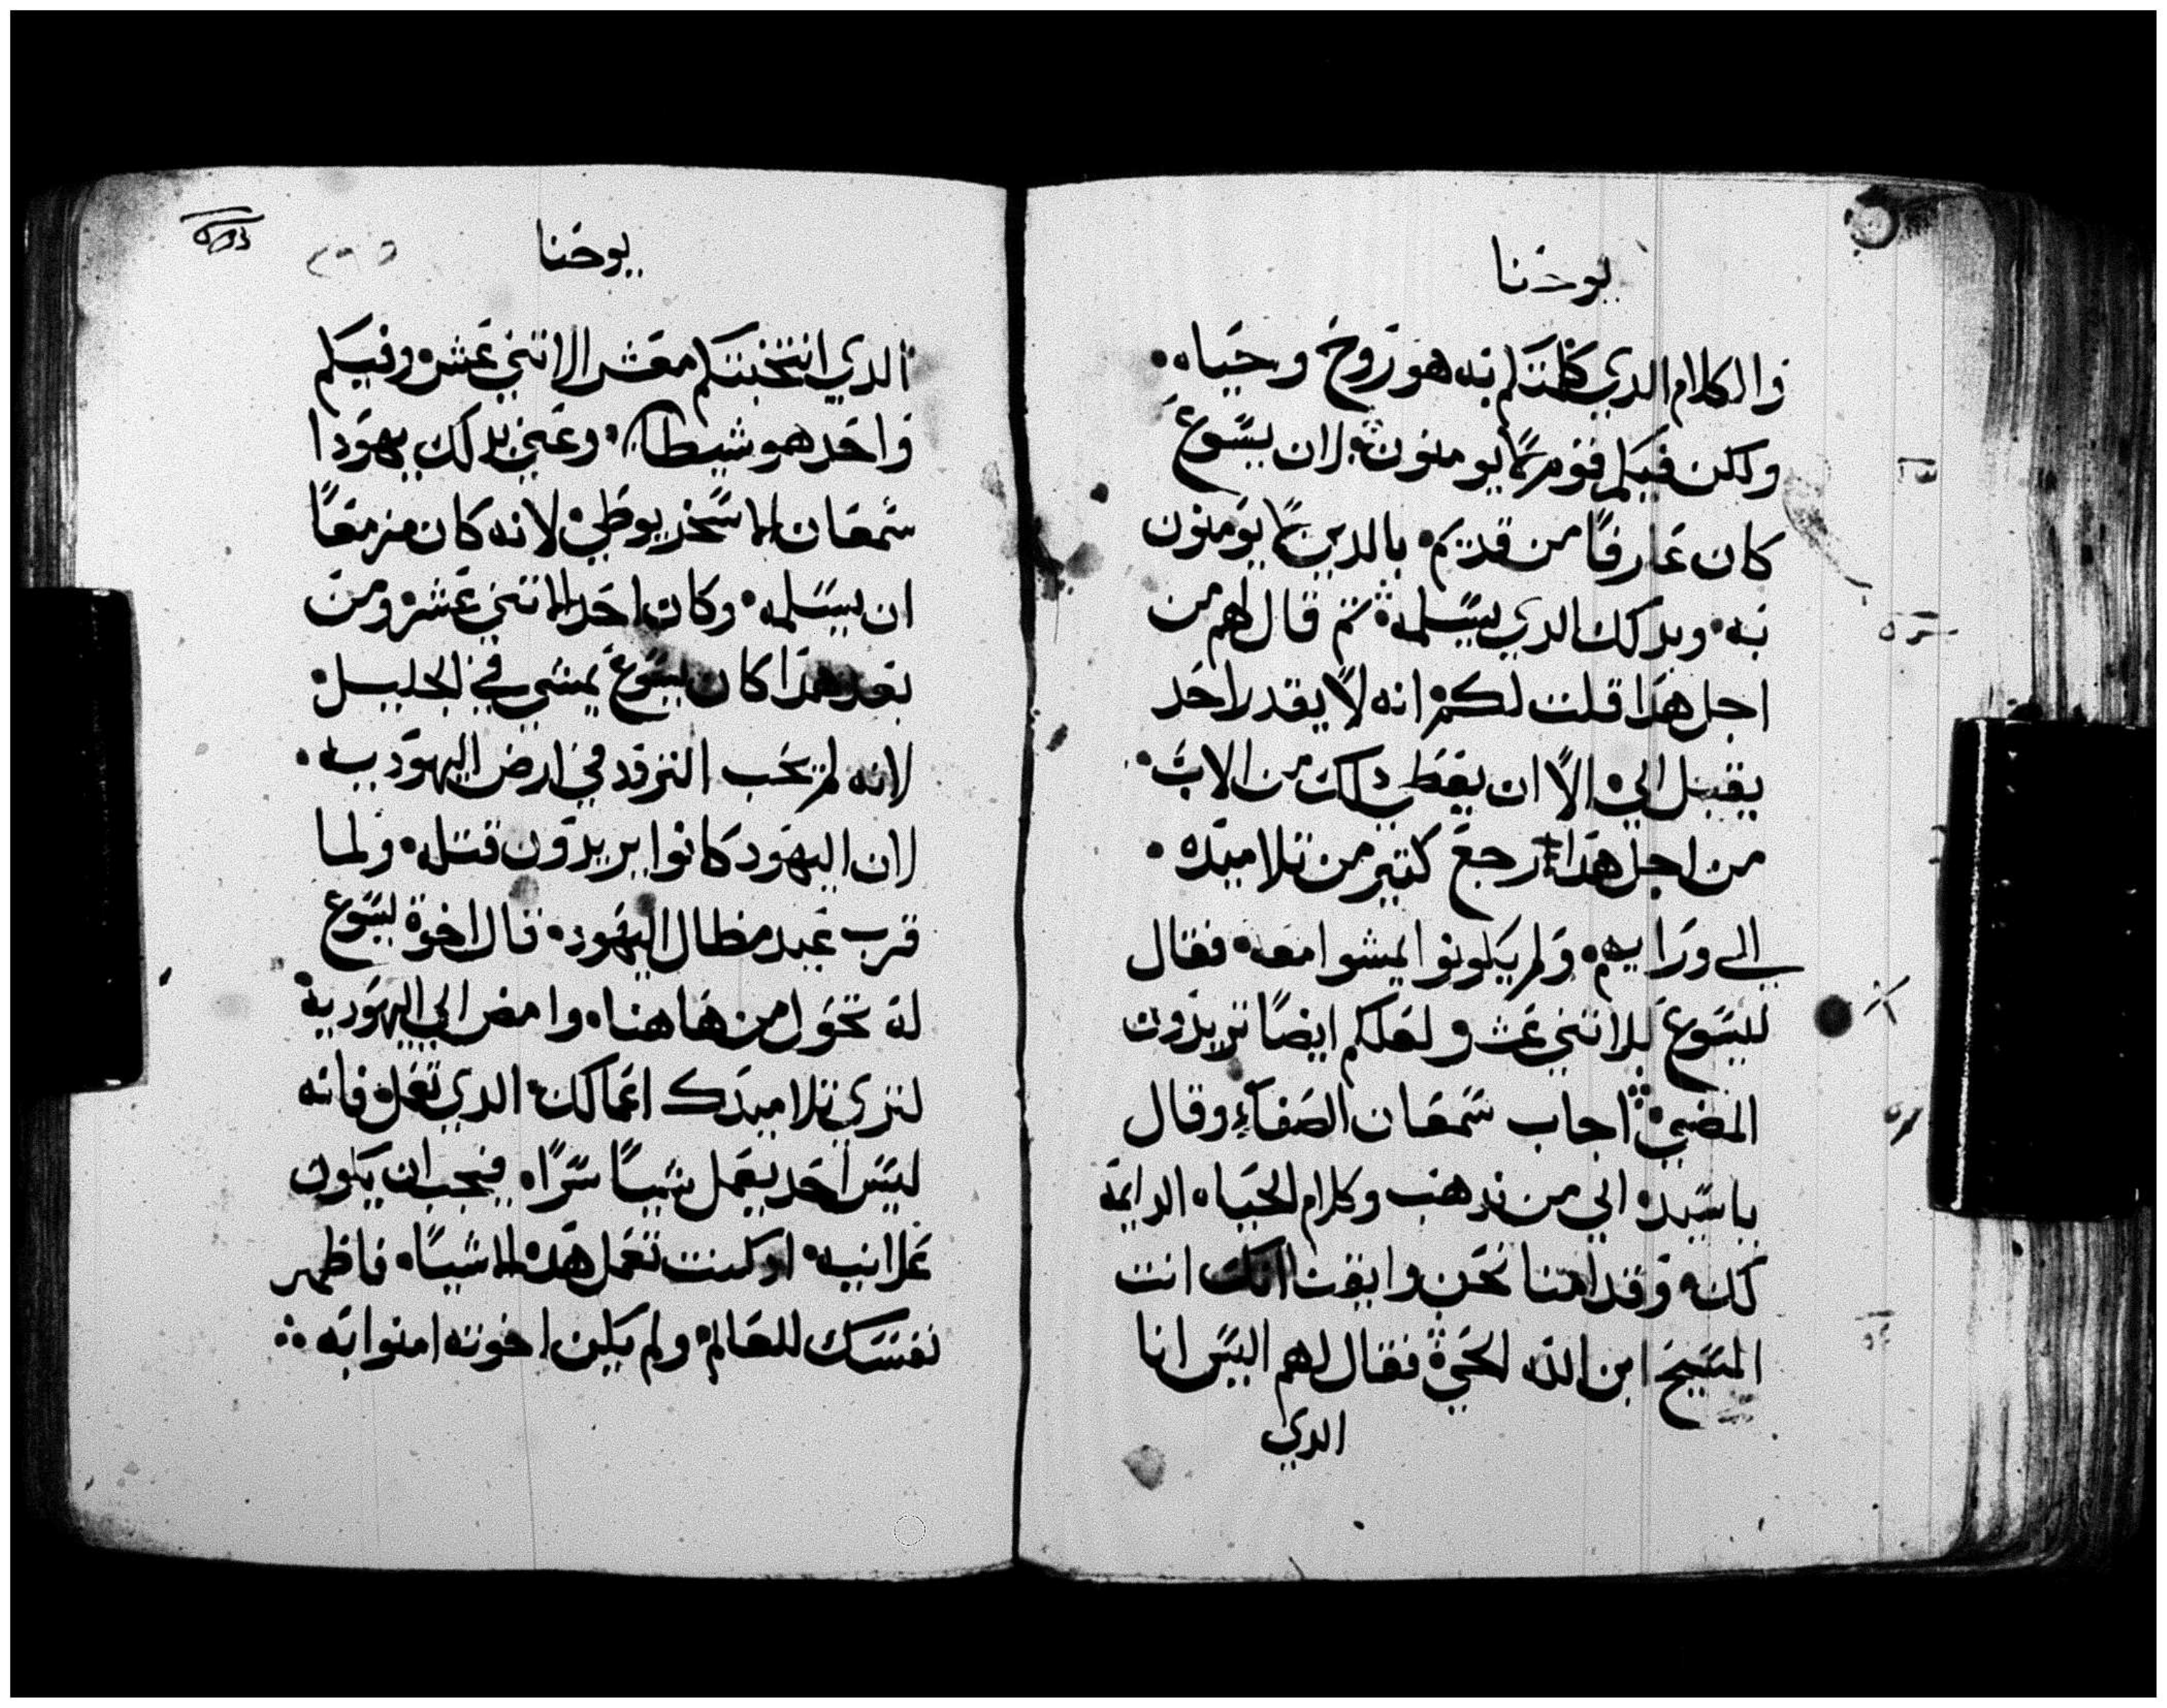 يوحنا
والكلام الدي كلمتكم به هو روح وحياه.
ولكن فيكم قوم لا يومنون. لان يسوع
كان عارفا من قديم. بالدين لا يومنون
به. وبدلك الدي يسلمه. تم قال لهم من
اجل هدا قلت لكم. انه لا يقدر احد
يقبل الي. الا ان يعطي دلك من الاب.
من اجل هدا رجع كتير من تلاميده.
الي ورايهم. ولم يكونوا يمشوا معه. فقال
ليسوع للاتني عشر ولعلكم ايضا تريدون
المضي. اجاب شمعان الصفاء وقال
ياسيد. الي من ندهب وكلام الحياه الدايمة
لك. وقد امنا نحن وايقنا انك انت
المسيح ابن الله الحي. فقال لهم اليس انا
الدي
يوحنا
الدي انتخبتكم معشر الاتني عشر. وفيكم
واحد هو شيطان. وعني بدلك يهودا
شمعان الاسخريوطي. لانه كان مزمعا
ان يسلمه. وكان احد الاتني عشر. ومن
بعد هدا كان يسوع يمشي في الجليل.
لانه لم يحب التردد في ارض اليهوديه.
لان اليهود كانوا يريدون قتله. ولما
قرب عيد مظال اليهود. قال اخوة يسوع
له تحول من هاهنا. وامض الي اليهودية
لتري تلاميدك اعمالك الدي تعمل. فانه
ليس احد يعمل شيا سرا. فيجب ان يكون
علانيه. اد كنت تعمل هده الاشيا. فاظهر
نفسك للعالم. ولم يكن اخوته امنوا به